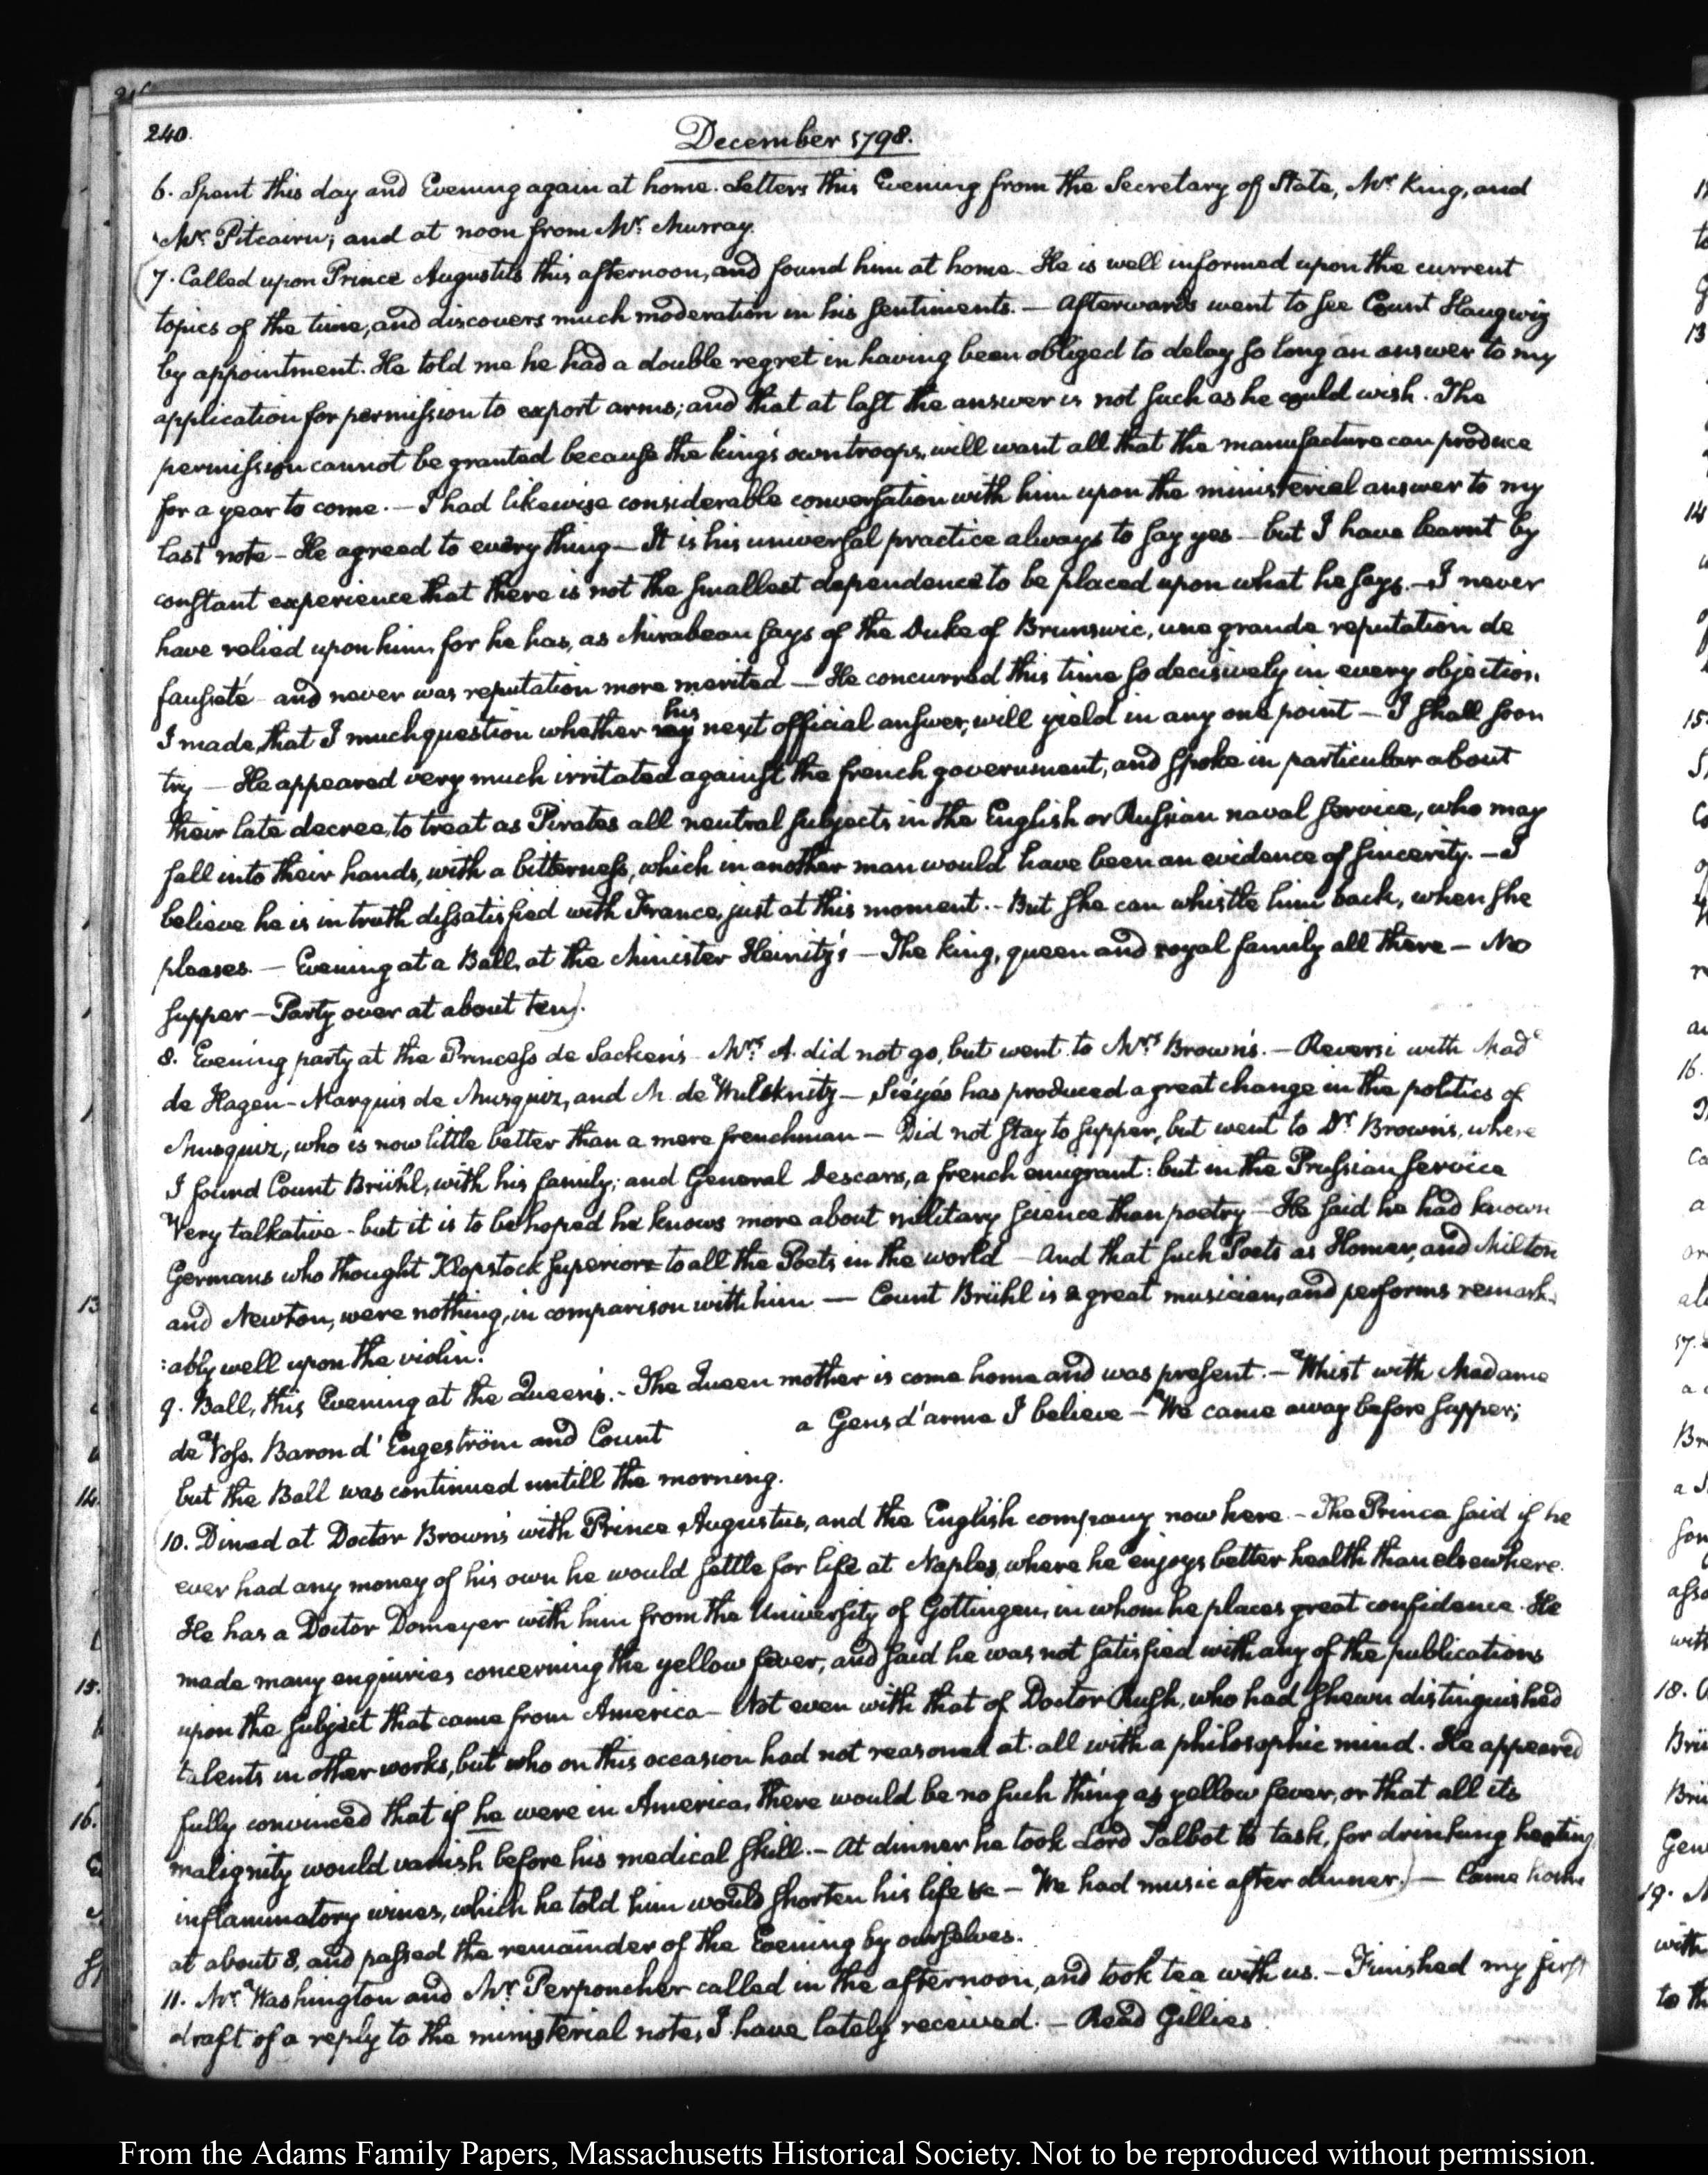 240.
December 1798.
6. Spent this day and Evening again at home. Letters this Evening from the Secretary of State, Mr. King, and
Mr. Pitcairn; and at noon from Mr. Murray.
7. Called upon Prince Augustus this afternoon, and found him at home. He is well informed upon the current
topics of the time, and discovers much moderation in his sentiments. — Afterwards went to see Count Haugwitz
by appointment. He told me he had a double regret in having been obliged to delay so long an answer to my
application for permission to export arms; and that at last the answer is not such as he could wish. The
permission cannot be granted because the king's own troops, will want all that the manufacture can produce
for a year to come. — I had likewise considerable conversation with him upon the ministerial answer to my
last note — He agreed to every thing — It is his universal practice always to say yes — but I have learnt by
constant experience that there is not the smallest dependence to be placed upon what he says. — I never
have relied upon him, for he has, as Mirabeau says of the Duke of Brunswic, une grande reputation de
fausseté and never was reputation more merited — He concurred this time so decisively in every objection
I made, that I much question whether his next official answer, will yield in any one point — I shall soon
try — He appeared very much irritated against the french government, and spoke in particular about
their late decree, to treat as Pirates all neutral subjects in the English or Russian naval service, who may
fall into their hands, with a bitterness, which in another man would have been an evidence of sincerity. — I
believe he is in truth dissatisfied with France, just at this moment. — But she can whistle him back, when she
pleases. — Evening at a Ball, at the Minister Heinitz's — The king, queen and royal family all there — No
supper — Party over at about ten).
8. Evening party at the Princess de Sacken's — Mrs. A. did not go, but went to Mrs. Brown's. — Reversi with Made
de Hagen — Marquis de Musquiz, and M. de Wulcknitz — Siéyès has produced a great change in the politics of
Musquiz, who is now little better than a mere frenchman — Did not stay to supper, but went to Dr. Brown's, where
I found Count Brühl, with his family; and General Descars, a french emigrant: but in the Prussian service
Very talkative — but it is to be hoped he knows more about military science than poetry — He said he had known
Germans who thought Klopstock superior to all the Poets in the world — And that such Poets as Homer, and Milton
and Newton, were nothing, in comparison with him — Count Brühl is a great musician, and performs remark-
:ably well upon the violin.
9. Ball, this Evening at the Queen's. — The Queen mother is come home and was present. — Whist with Madame
de Voss. Baron d'Engeström and Count a Gens d'arme I believe — We came away before supper;
but the Ball was continued untill the morning.
10. Dined at Doctor Brown's with Prince Augustus, and the English company now here — The Prince said if he
ever had any money of his own he would settle for life at Naples, where he enjoys better health than elsewhere.
He has a Doctor Domeyer with him from the University of Gottingen, in whom he places great confidence. He
made many enquiries concerning the yellow fever, and said he was not satisfied with any of the publications
upon the subject that came from America — Not even with that of Doctor Rush, who had shewn distinguished
talents in other works, but who on this occasion had not reasoned at all with a philosophic mind. He appeared
fully convinced that if he were in America, there would be no such thing as yellow fever, or that all its
malignity would vanish before his medical skill. — At dinner he took Lord Talbot to task, for drinking heating
inflammatory wines, which he told him would shorten his life &c — We had music after dinner.) — Came home
at about 8, and passed the remainder of the Evening by ourselves.
11. Mr. Washington and Mr. Perponcher called in the afternoon, and took tea with us. — Finished my first
draft of a reply to the ministerial note, I have lately received. — Read Gillies
From the Adams Family Papers, Massachusetts Historical Society. Not to be reproduced without permission.